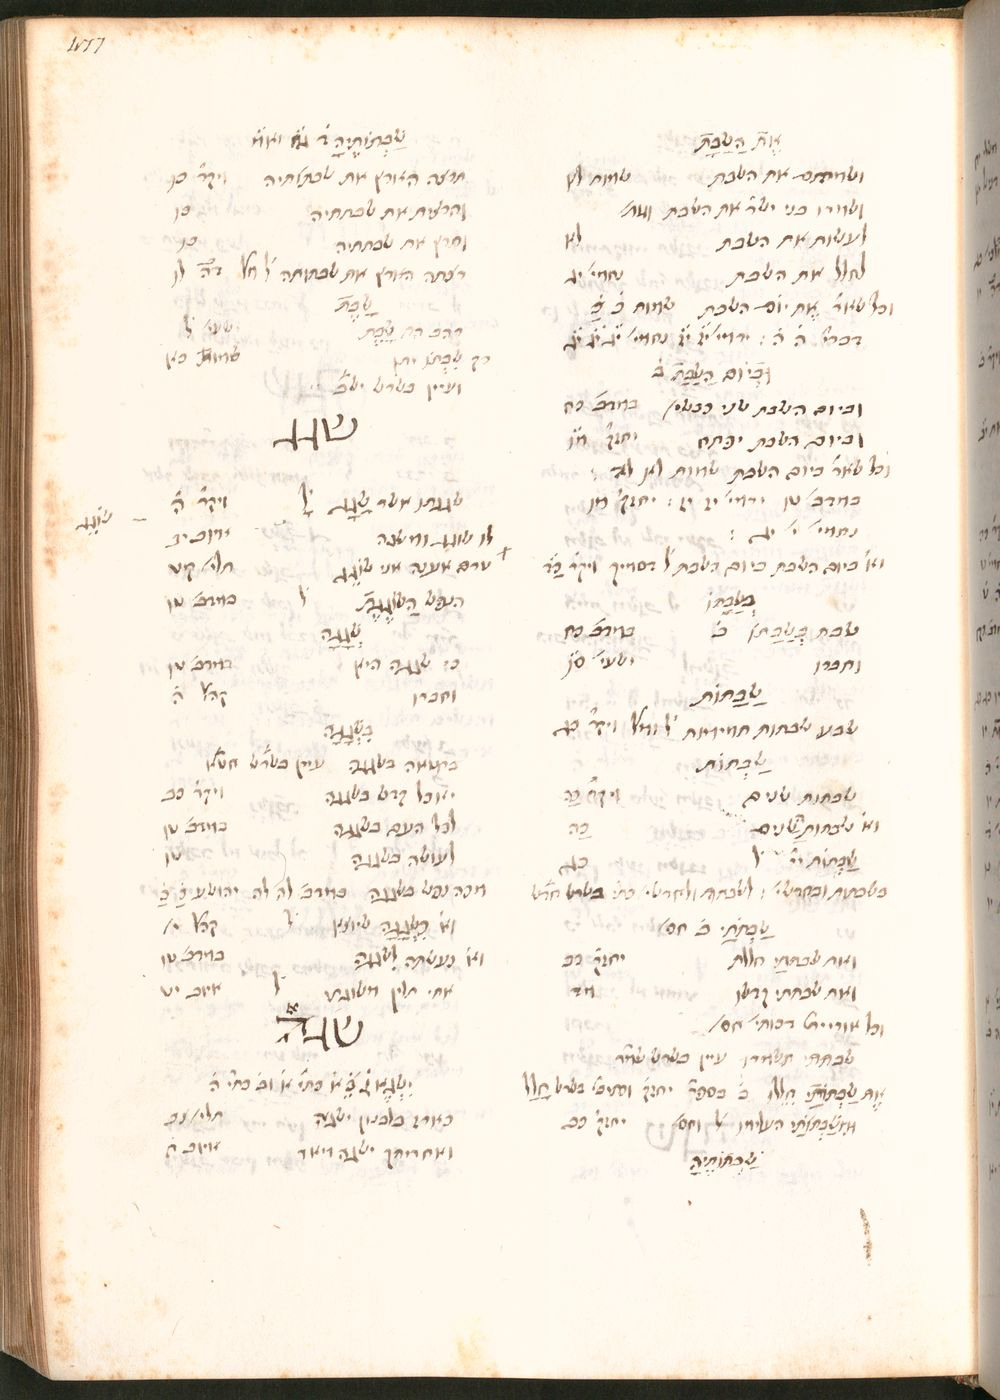 אֶת הַשַׁבָּת
ושמרתם את השבת שמות לא
ושמרו בני ישר את השבת
לעשות את השבת לא
לחלל את השבת נחמי׳ יג
וכל שאר אֶת יום השבת שמות כ כ
וּבְיוֹם הַשַׁבָּת ב
וביום השבת שני כבשי׳ במדב׳ כח
וביום השבת יפתח יחזק׳ מו
וכל שאר ביום השבת שמות
במדב׳ טו ירמי׳ יז יז : יחזק׳ מו
נחמי׳ י׳ יג :
וא׳ ביום השבת ביום השבת ל׳ דסמיך ויקר׳ כד
בְּשַׁבַּתּוֹ
שבת בְּשַׁבַּתּוֹ ב׳ במדב׳ כח
וחברו ישעי׳ סו
שַׁבָּתוֹת
שבע שבתות תמימות ויקר׳ כג
שַׁבְּתוֹת
שבתות שנים ויקר׳ כה
וא׳ שבתות שנים כה
שַׁבְּתוֹת יי׳ ל׳ כג
שַׁבְּתֹתַי ב׳ חס׳
ואת שבתתי חללת יחזק׳ כב
ואת שבתתי קדשו מד
וכל אורייתא דכותי׳ חס׳
שבתתי תשמרו עיין בשרש שמר
אֶת שַׁבְּתוֹתַי חִלְּלוּ
העלימו יחזק׳ כב
שַׁבְּתוֹתֶיהָ
שַׁבְּתוֹתֶיהָ
תרצה הארץ את שבתתיה ויקר׳ כו
והרצת את שבתתיה כו
ותרץ את שבתתיה כו
רצתה הארץ את שבתותיה
שָׁבֶת
רהב הם שָׁבֶת ישעי׳ ל׳
רק שִׁבְתּוֹ יתן שמות כא
ועיין בשרש ישב :
שגג
שגגתו אשר שָׁגָג ל׳ ויקר׳ ה
שׁוֹגֵג
לו שוגג ומשגה איוב יב
טרם אענה אני שׁוֹגֵג תלי׳ קיט
הנפש הַשׁוֹגֶגֶת ל׳ במדב׳ טו
שְׁגָגָה
כי שגגה היא במדב׳ טו
וחברו קהל׳ ה
בִּשְׁגָגָה
בחטאה בשגגה עיין בשרש חטא
יאכל קדש בשגגה ויקר׳ כב
לכל העם בשגגה במדב׳ טו
לעושה בשגגה טו
מכה נפש בשגגה במדב׳ לה לה יהושע כ כ
וא׳ כִּשְׁגָגָה שיוצא ל׳ קהל׳ י׳
וא׳ נעשתה לִשְׁגָגָה במדב׳ טו
אתי תלין משוגתי ל׳ איוב יט
שגה
כארז בלבנון ישגה תלי׳ צב
ואחריתך ישגה מאד איוב ח